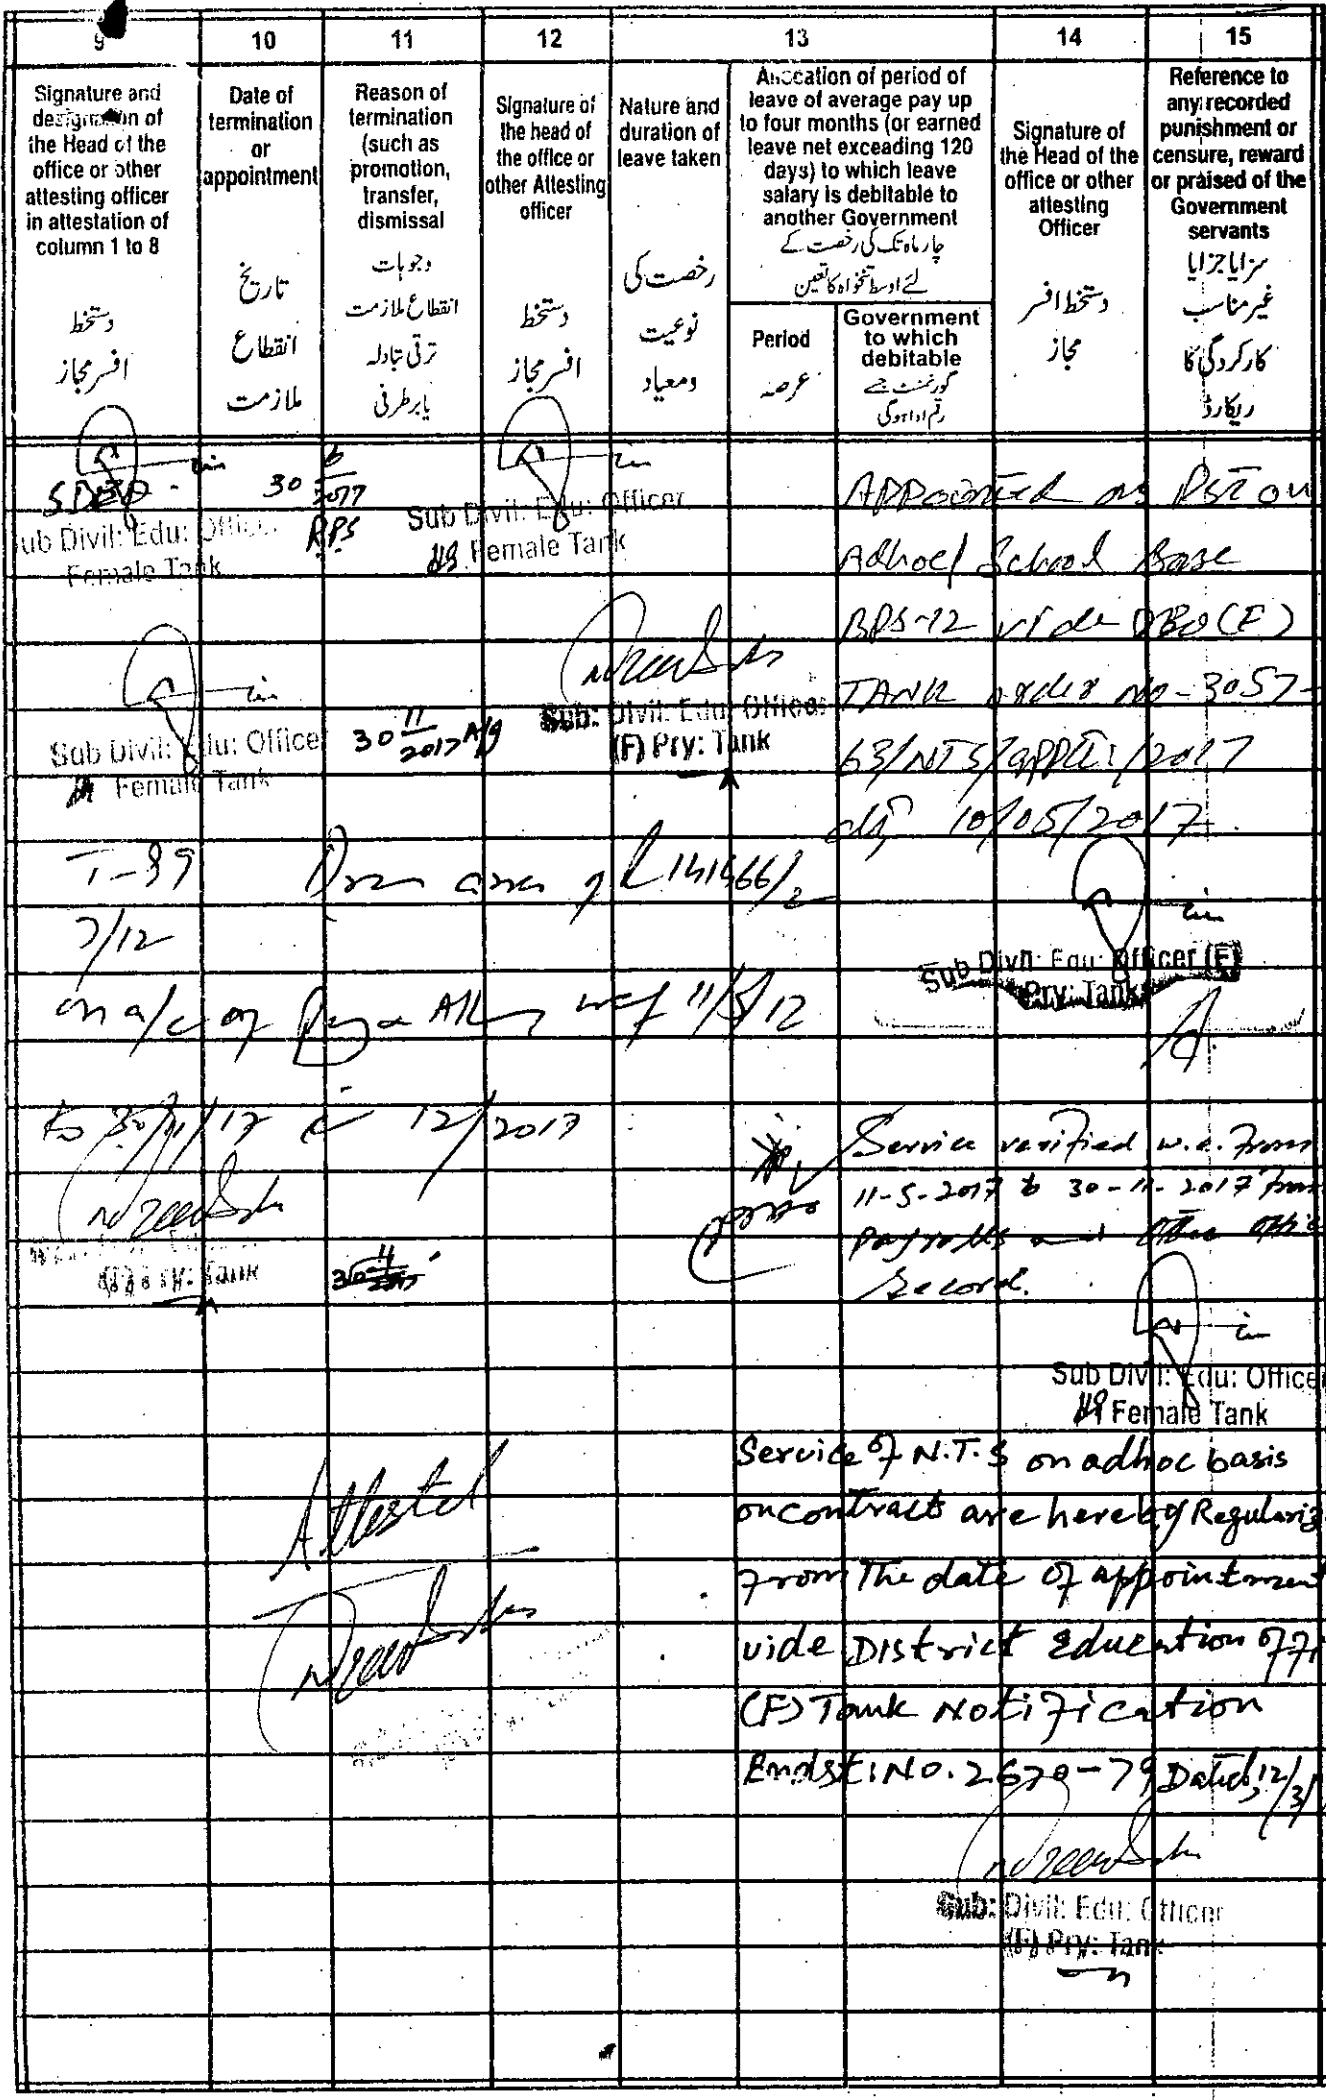 9
10
11
12
13
14
15
Signature and
designation of
the Head of the
office or other
attesting officer
in attestation of
column 1 to 8
دستخط
افسر مجاز
Date of
termination
or
appointment
تاریخ
انقطاع
ملازمت
Reason of
termination
(such as
promotion,
transfer,
dismissal
وجوہات
انقطاع ملازمت
ترقی تبادلہ
یا برطرفی
Signature of
the head of
the office or
other Attesting
officer
دستخط
افسر مجاز
Nature and
duration of
leave taken
رخصت کی
نوعیت
ومعیاد
Allocation of period of
leave of average pay up
to four months (or earned
leave net exceeding 120
days) to which leave
salary is debitable to
another Government
چار ماہ تک کی رخصت کے
لئے اوسط تنخواہ کا تعین
Period
عرصہ
Government
to which
debitable
گورنمنٹ جسے
رقم ادا ہوگی
Signature of
the Head of the
office or other
attesting
Officer
دستخط افسر
مجاز
Reference to
any recorded
punishment or
censure, reward
or praised of the
Government
servants
سزا یا جزا یا
غیر مناسب
کارکردگی کا
ریکارڈ
SDEO
Sub Divil: Edu: Officer
Female Tank
30 6/2017
RPS
Sub Divil: Edu: Officer
Female Tank
Appointed as PST on
Adhoc/School Base
BPS-12 vide DEO(F)
TANK order No-3057-
63/NTS/Apptt:/2017
dt; 10/05/2017.
Sub Divil: Edu: Officer
Female Tank
30 11/2017 A/G
Sub: Divil: Edu: Officer
(F) Pry: Tank
T-89
7/12
141466/2
Sub Divil: Edu: Officer (F)
Pry: Tank
on a/c of Pay & All wef 11/5/12
to 30/11/17 in 12/2017
Service verified w.e. from
11-5-2017 to 30-11-2017 from
Payrolls and other office
Record.
(F) Pry: Tank
30 11/2017
Sub Divil: Edu: Office
Female Tank
Attested
Service of N.T.S on adhoc basis
on contract are hereby Regulariz
from The date of appointment
vide District Education offi
(F) Tank Notification
Endst: No. 2670-79 Dated, 12/3/
Sub: Divil: Edu: Officer
(F) Pry: Tank